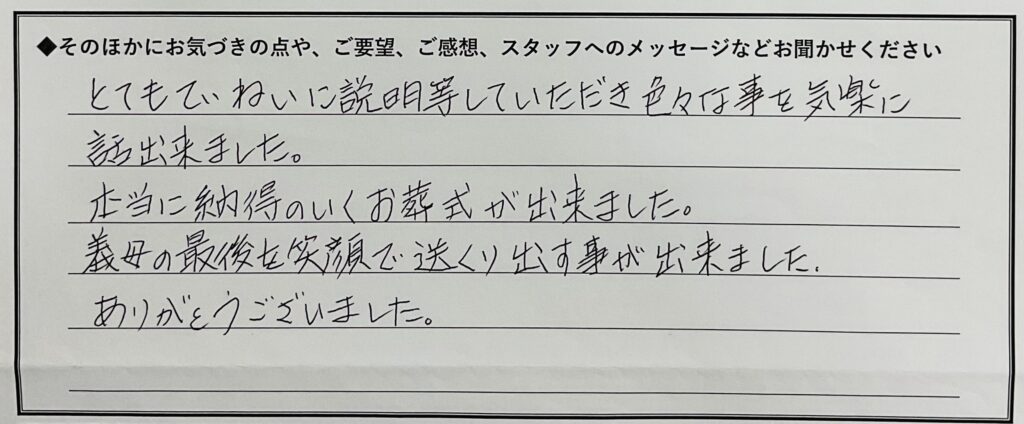 ◆そのほかにお気づきの点や、ご要望、ご感想、スタッフへのメッセージなどお聞かせください
とてもてぃねいに説明等していただき色々な事を気楽に
話出来ました。
本当に納得のいくお葬式が出来ました。
義母の最後を笑顔で送くり出す事が出来ました.
ありがとうございました。